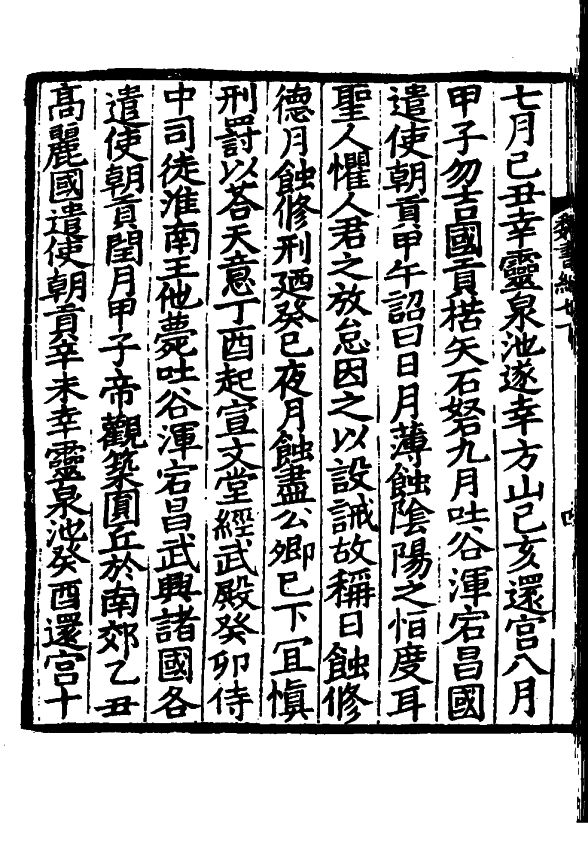 七月己丑幸靈泉池遂幸方山己亥還宫八月
甲子勿吉國貢楛矢石砮九月吐谷渾宕昌國
遣使朝貢甲午詔曰日月薄蝕隂陽之恒度耳
聖人懼人君之放怠因之以設誡故稱日蝕修
德月蝕修刑廼癸巳夜月蝕盡公卿已下冝慎
刑罰以荅天意丁酉起宣文堂經武殿癸卯侍
中司徒淮南王他薨吐谷渾宕昌武興諸國各
遣使朝貢閏月甲子帝觀築圓丘於南郊乙丑
髙麗國遣使朝貢辛未幸靈泉池癸酉還宫十